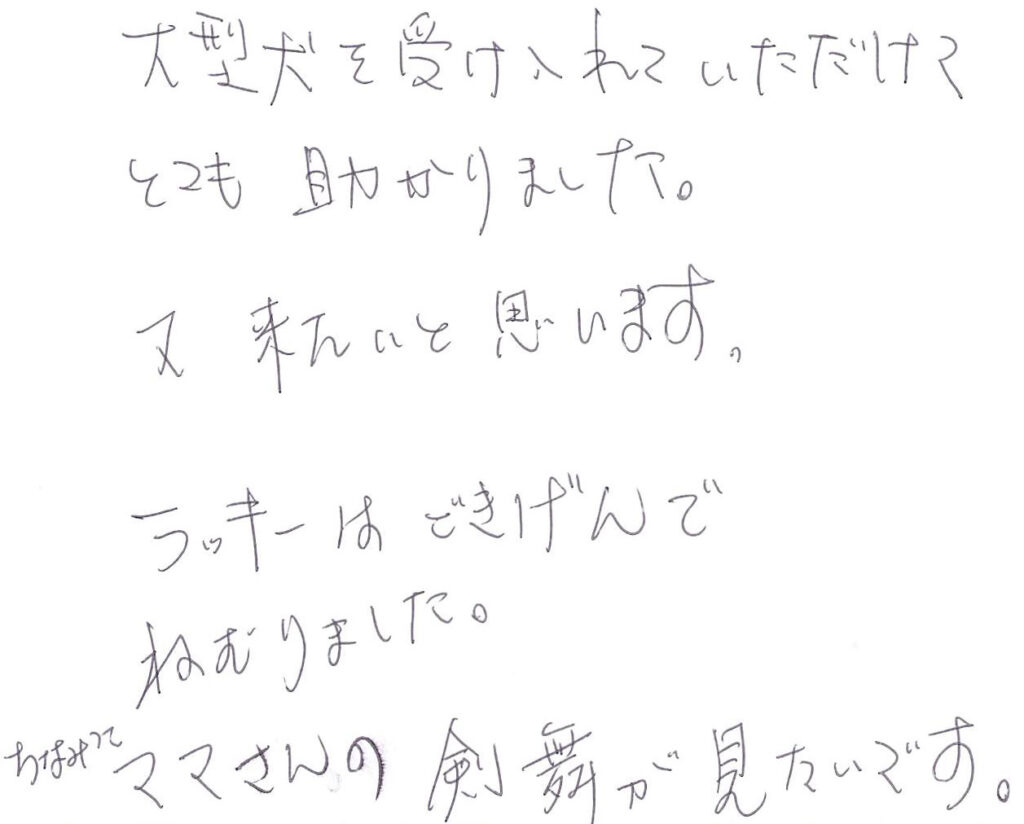 大型犬を受け入れていただけて
とても 助かりました。
又 来たいと 思います。
ラッキーは ごきげんで
ねむりました。
ちなみにママさんの 剣舞が 見たいです。